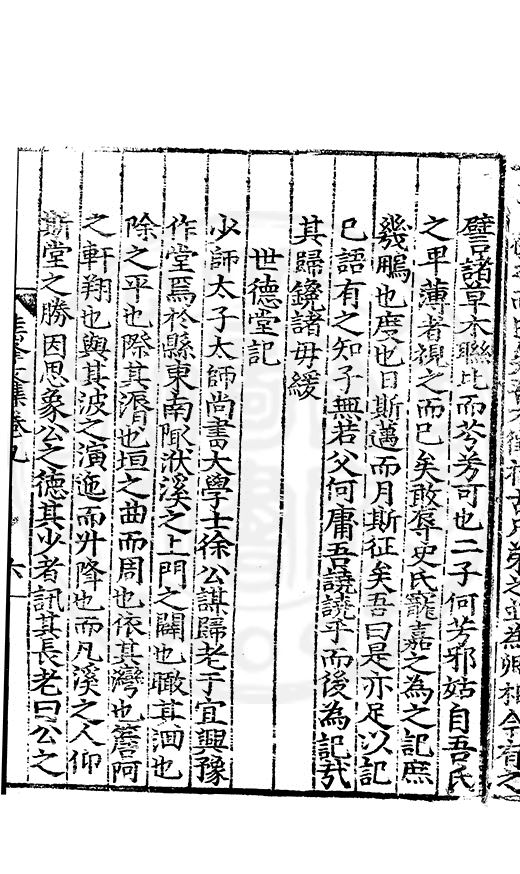 譬諸草木聯比而芩芳可也二子何芳邪姑自吾氏
之卑薄者視之而已矣敢辱史氏寵嘉之為之記庶
幾鵬也度也日斯邁而月斯征矣吾曰是亦足以記
已語有之知子無若父何庸吾譊譊乎而後為記㢤
其歸鑱諸毋緩
世德堂記
少師太子太師尚書大學士徐公謀歸老于宜興豫
作堂焉於縣東南陬洑溪之上門之闢也瞰其洄也
除之平也際其漘也垣之曲而周也依其灣也簷阿
之軒翔也與其波之演迤而升降也而凡溪之人仰
斯堂之勝因思象公之德其少者訊其長老曰公之
文集卷九
六